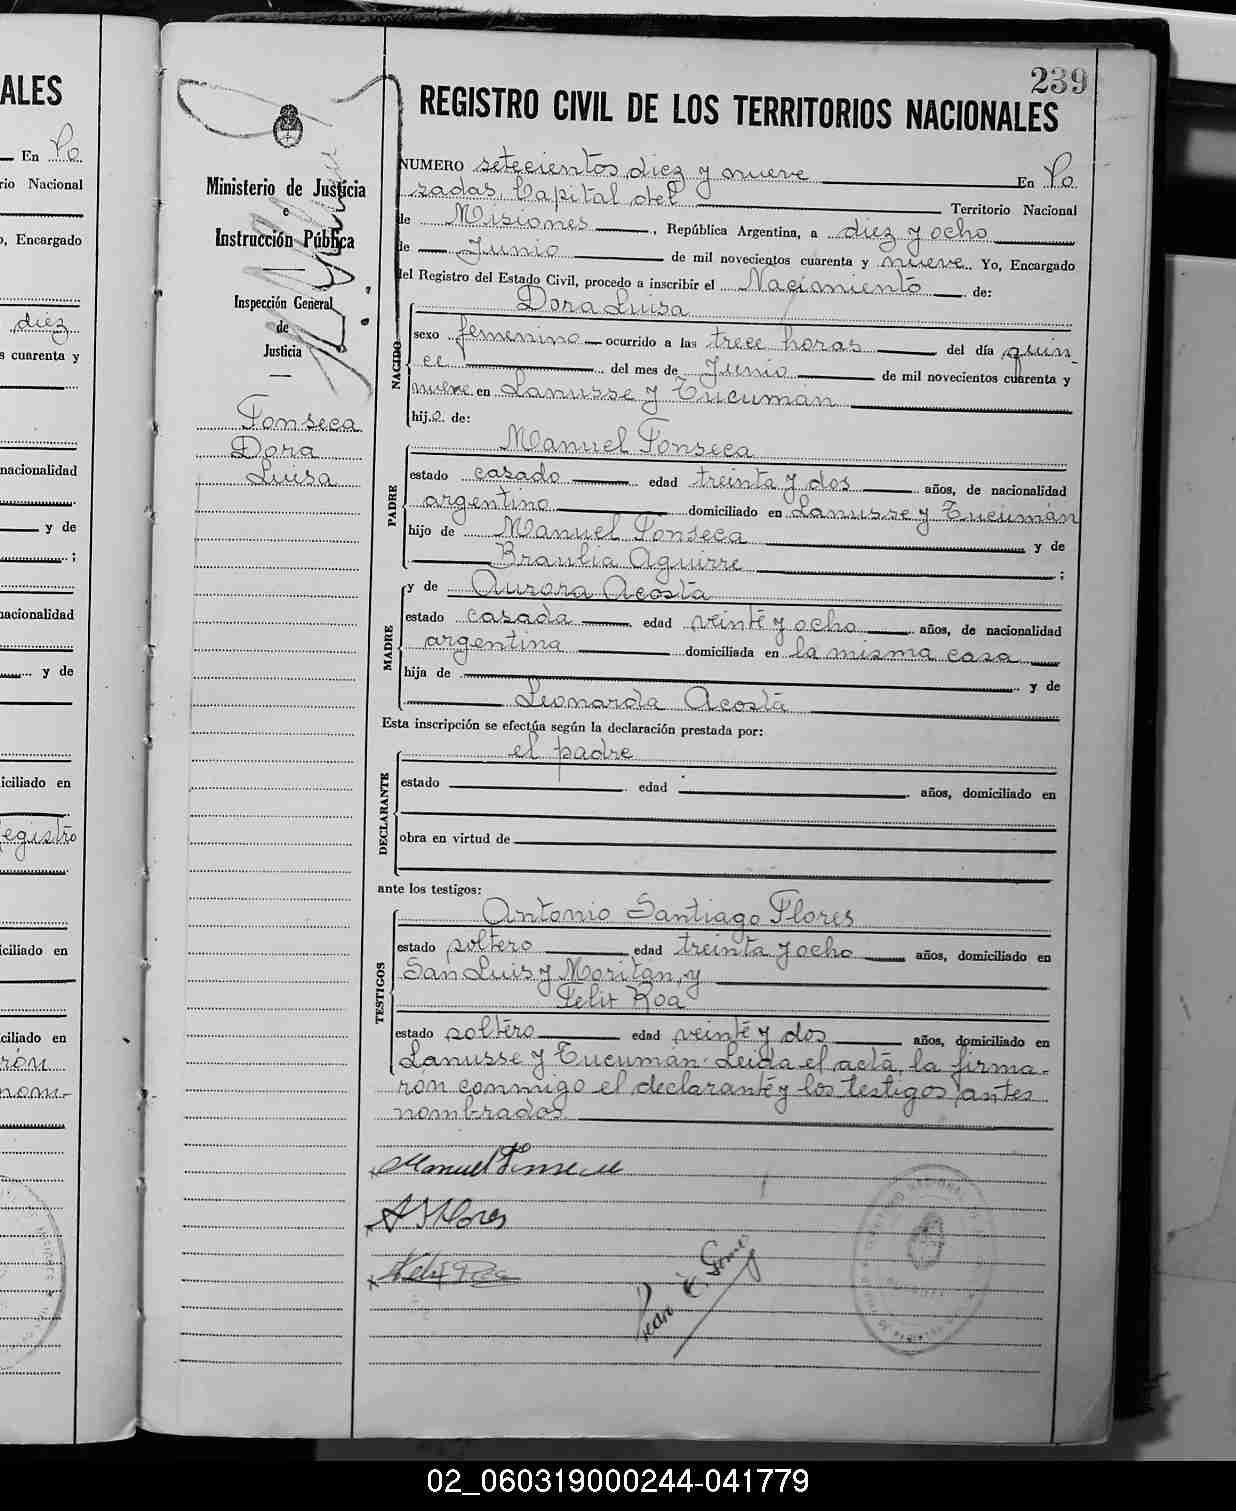 ALES
En Po
rio Nacional
o, Encargado
diez
s cuarenta y
nacionalidad
y de
;
nacionalidad
y de
iciliado en
egistro
iciliado en
ciliado en
rón
nom-
239
REGISTRO CIVIL DE LOS TERRITORIOS NACIONALES
Ministerio de Justicia
e
Instrucción Pública
Inspección General
de
Justicia
Fonseca
Dora
Luisa
NUMERO setecientos diez y nueve En Po
sadas, Capital del Territorio Nacional
de Misiones, República Argentina, a diez y ocho
de Junio de mil novecientos cuarenta y nueve. Yo, Encargado
del Registro del Estado Civil, procedo a inscribir el Nacimiento de:
NACIDO
Dora Luisa
sexo femenino ocurrido a las trece horas del día quin
ce del mes de Junio de mil novecientos cuarenta y
nueve en Lanusse y Tucumán
hija de:
PADRE
Manuel Fonseca
estado casado edad treinta y dos años, de nacionalidad
argentino domiciliado en Lanusse y Tucumán
hijo de Manuel Fonseca y de
Braulia Aguirre ;
MADRE
y de Aurora Acosta
estado casada edad veinte y ocho años, de nacionalidad
argentina domiciliada en la misma casa
hija de y de
Leonarda Acosta
Esta inscripción se efectúa según la declaración prestada por:
DECLARANTE
el padre
estado edad años, domiciliado en
obra en virtud de
ante los testigos:
TESTIGOS
Antonio Santiago Flores
estado soltero edad treinta y ocho años, domiciliado en
San Luis y Moritan, y
Felix Roa
estado soltero edad veinte y dos años, domiciliado en
Lanusse y Tucumán. Leida el acta, la firma-
ron conmigo el declarante y los testigos antes
nombrados
Manuel Fonseca
A S Flores
Felix Roa
02_060319000244-041779